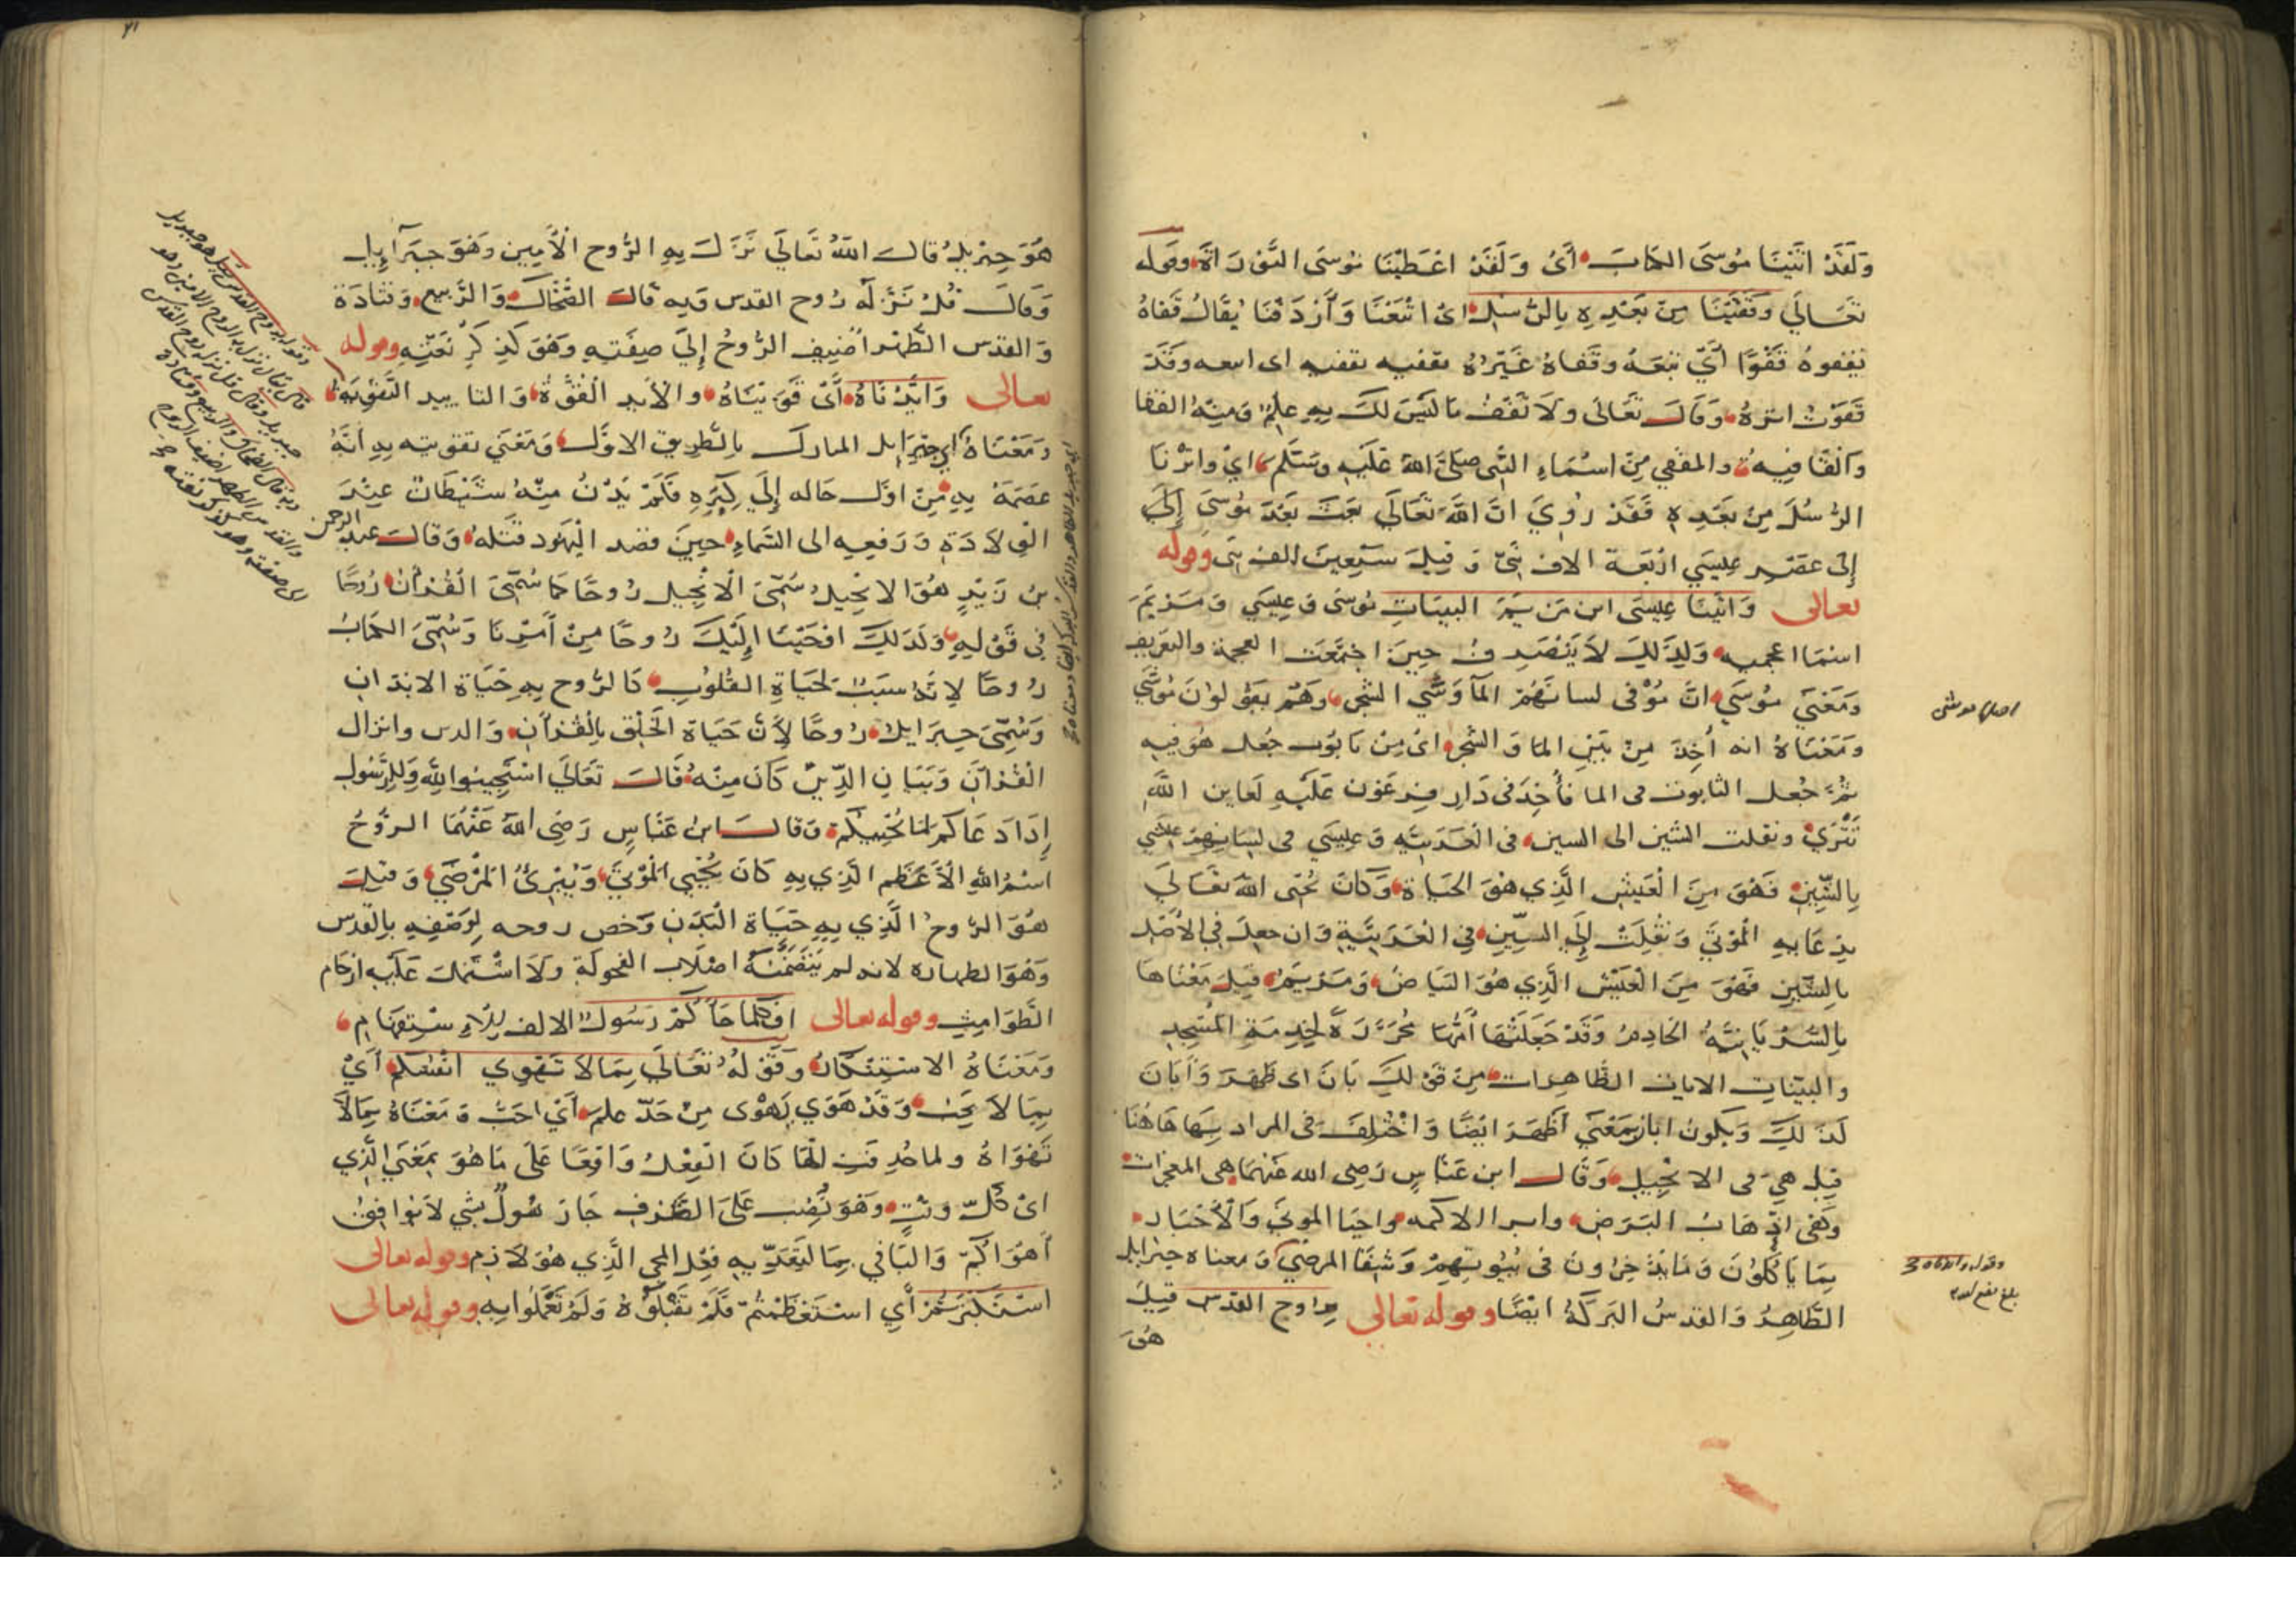 وَلَقَدْ اتَيْنَا مُوسَى الكتابَ أَىْ وَلَقَدْ اعْطَيْنَا مُوسَى التَّوْرَاةَ وقوله
تعَالَي وَقَفَّيْنَا مِنْ بَعْدِهِ بِالرُّسُلِ اىْ اتْبَعْنَا وَأَرْدَفْنَا يُقَالُ قَفَاهُ
يَقْفوهُ قَفْوًا أَيْ تَبِعَهُ وقَفاهُ غَيْرُهُ يقفيه تقفيه اى اتبعه وقَدْ
قَفَوْتُ اثرهُ وَقَالَ تَعَالَى ولَا تَقْفُ مَا لَيْسَ لَكَ بِهِ عِلمٌ وَمِنْهُ القفا
وَالقَافِيهُ والمقفى مِنْ اسْمَاءِ النَّبِى صَلَى اللهُ عَلَيْهِ وسَلَّمَ اىْ واثرنَا
الرُّسُلَ مِنْ بَعْدِهِ فَقَدْ رُوِيَ انَّ اللَّهَ تَعَالَي بَعَثَ بَعْدَ مُوسَى إِلَى
إِلى عَصْرِ عِيسَي ارْبَعَةَ الاف نَبِىّ وَ قِيلَ سَبْعِينَ الف نبى وقوله
تعالى وَاتَيْنَا عِيسَى ابن مَرْيَمَ البيناتِ مُوسَى وَ عِيسَي وَ مَرْيَمَ
اسْمَا اعجميه وَلِذَلِكَ لَا يَنْصَرِفُ حِينَ اجْتَمَعَتْ العجمة والتعريف
وَمَعْنَى مُوسَي انَّ مُوْ فى لسانهُمْ المآ وَشَي الشجر وهُمْ يقولوْنَ مُوشَي
اصله موشى
ومَعْنَاهُ انه أُخِذَ مِنْ بَيْنِ المَا وَ الشجر اىْ مِنْ تابوت جُعل هُوَ فيه
ثُمَّ جُعل التابوت فى الما فأُخِذَ فى دَارِ فِرعَوْن عَلَيْهِ لعاين اللَّهِ
تَتْرَي ونقلت الشين الى السين فى الْعَرَبيَّه وَ عِيسَي فى لسَانِهِمْ عيشي
بِالشّينِ فَهُوَ مِنَ الْعَيْشِ الَّذِي هُوَ الحَيَاة وَكَانَ يُحْيى اللهُ تَعَالَي
بِدعَائِهِ الْمَوْتَي وَنُقِلَتْ إِلَى السِّينِ فِي الْعَرَبِيَّةِ وَان جعلَ فِي الأَصْلِ
بالسِّينِ فَهُوَ مِنَ الْعَيْسِ الَّذِي هُوَ البَيَاضُ وَمَرْيَمُ قيل مَعْنَاهَا
بِالسُّرْيَانِيَّهُ الخادِمُ وَقَدْ جَعَلَتْهَا أُمُّهَا مُحَرَّرَةً لِخِدمَةِ الْمَسْجِدِ
والبيّنات الايات الظَّاهِرَات مِنْ قَوْلِكَ بَانَ اى ظَهَرَ وَأَبَانَ
كَذَلِكَ وَيكون ابَانَ بِمَعْنَي أَظْهَرَ ايْضًا وَاخْتُلِفَ فى المراد بِهَا هَاهُنَا
قيل هِيَ فى الانْجِيلِ وَقَالَ ابن عَبَّاسٍ رَضِى الله عَنهُمَا هى المعجزات
وَهى اذْهَابُ البَرَصِ وابرا الاكمه واحيَا الموتَى وَالْأَخْبَار
بِمَا يَأْكُلُوْنَ وَمَا يَدَّخِرُونَ فى بُيُوتِهِمْ وَشِفَا المرضى وَ معناه جبرايل
وقوله وايدناه
الطَّاهِرُ وَالقدسُ البَرَكَهُ ايْضًا وقوله تعالى بروح القدس قِيلَ
هُوَ
هُوَ جِبْرِيلُ قالَ اللهُ تَعَالَي نَزَلَ بِهِ الرُّوح الْأَمِين وَهُوَ جبرآيل
وَقَالَ قُلْ نَزَّلَهُ رُوح القدس وَبِه قالَ الضَّحَّاك وَالرَّبِيع وَقتَادَة
وَ القدس الطُّهْر أُضِيف الرُّوحُ إِلَى صِفَتِهِ وَهُوَ كَذِكْرِ نَعْتِهِ وقوله
تعالى وَايَّدْنَاهُ أَىْ قَوَّيْنَاهُ والأَيد الْقُوَّةُ وَالتاييد التَّقْوِيَهُ
وَمَعْنَاهُ اي جبرايل المبارَك بِالطرِيق الاوَّلِ وَمَعْنَى تقويته بِهِ انَّهُ
عَصَمَهُ بِهِ مِنْ اوَّلِ حَاله إِلَى كِبَرِهِ فَلَمْ يَدْنُ مِنْهُ شَيْطَانٌ عِنْدَ
الْوِلَادَةِ وَرَفعِهِ الى السَّمَاءِ حِينَ قصد الْيَهُود قَتْلَهُ وَقَالَ عبد الرحمن
بْنُ زَيْدٍ هُوَ الانجِيل سُمِّىَ الْانْجِيل رُوحًا كَمَا سُمِّىَ الْقُرْانُ رُوحًا
فى قَوْلِهِ وَكَذَلِكَ اوْحَيْنَا إِلَيْكَ رُوحًا مِنْ أَمْرِنَا وَسُمِّىَ الكتابُ
رُوحًا لِانهُ سَبَبٌ لِحَيَاةِ القُلُوبِ كَالرُّوح بِهِ حَيَاة الابْدَانِ
وَسُمِّىَ جبرَايل رُوحًا لِأَنَّ حَيَاةَ الْخَلْقِ بِالْقُرْآنِ وَالدين وانزال
الْقُرْآنَ وَبَيَانِ الدِّينِ كَانَ مِنْهُ قَالَ تَعَالَى اسْتَجِيبُوا لِلَّهِ وَلِلرَّسُولِ
إِذَا دَعَاكُمْ لِمَا يُحْيِيكُمْ وَقالَ ابن عَبَّاسٍ رَضِىَ اللهُ عَنْهُمَا الرُّوحُ
اسْمُ اللهِ الْأَعْظَمِ الَّذِي بِهِ كَانَ يُحْيِي الْمَوْتَي وَيُبْرِئُ الْمَرْضَي وَقِيلَ
هُوَ الرُّوحُ الَّذِي بِهِ حَيَاة الْبَدَنِ وَخص روحه لِوَصْفِهِ بِالْقُدس
وَهُوَ الطهاره لانه لم يَتَضَمَّنْهُ اصْلَاب الفحولَةِ ولَا اشْتَمَلَتْ عَلَيْهِ ارْحَام
الطَّوَامِثِ وقوله تعالى افَكلما جَاءَكُمْ رَسُولٌ الالف لِلْاسْتِفهَامِ
وَمَعْنَاهُ الاسْتِنْكَارُ وَقَوْلُهُ تَعَالَى بِمَا لَا تَهْوى انْفُسُكُمْ أَيْ
بِمَا لَا يُحِبُّ وَقَدْ هَوِيَ يَهْوَى مِنْ حَدّ عَلِمَ أَيْ احَبَّ وَ مَعْنَاهُ بِمَا لَا
تَهْوَاهُ ولما حُذِفَتِ الْهَا كَانَ الْفِعْلُ وَاقِعًا عَلَى مَا هُوَ بِمَعْنَي الَّذِي
اىْ كُلّ وقْتٍ وهُوَ نُصِب عَلَى الظَّرْفِ جَاءَ رسُولٌ بشي لَا يُوَافِقُ
أَهْوَاكُمْ وَالبَا فِي بِمَا لِتَعَدِّيه فِعْل المجى الَّذِي هُوَ لَازِم وقوله تعالى
اسْتَكْبَرْتُمْ أَيِ اسْتَعْظَمْتُمْ فَلَمْ تَقْبَلُوْهُ وَلَمْ تَعْمَلُوا بِهِ وقوله تعالى